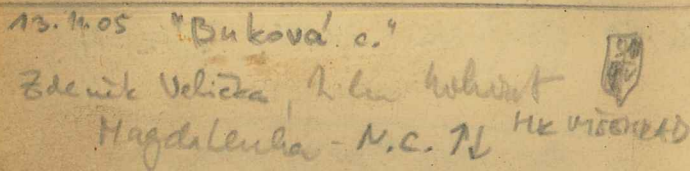 13. 11. 05 "Buková c."
Zdeněk Velička,
Magdalenka - N.C. ↑↓ HK VYŠEHRAD